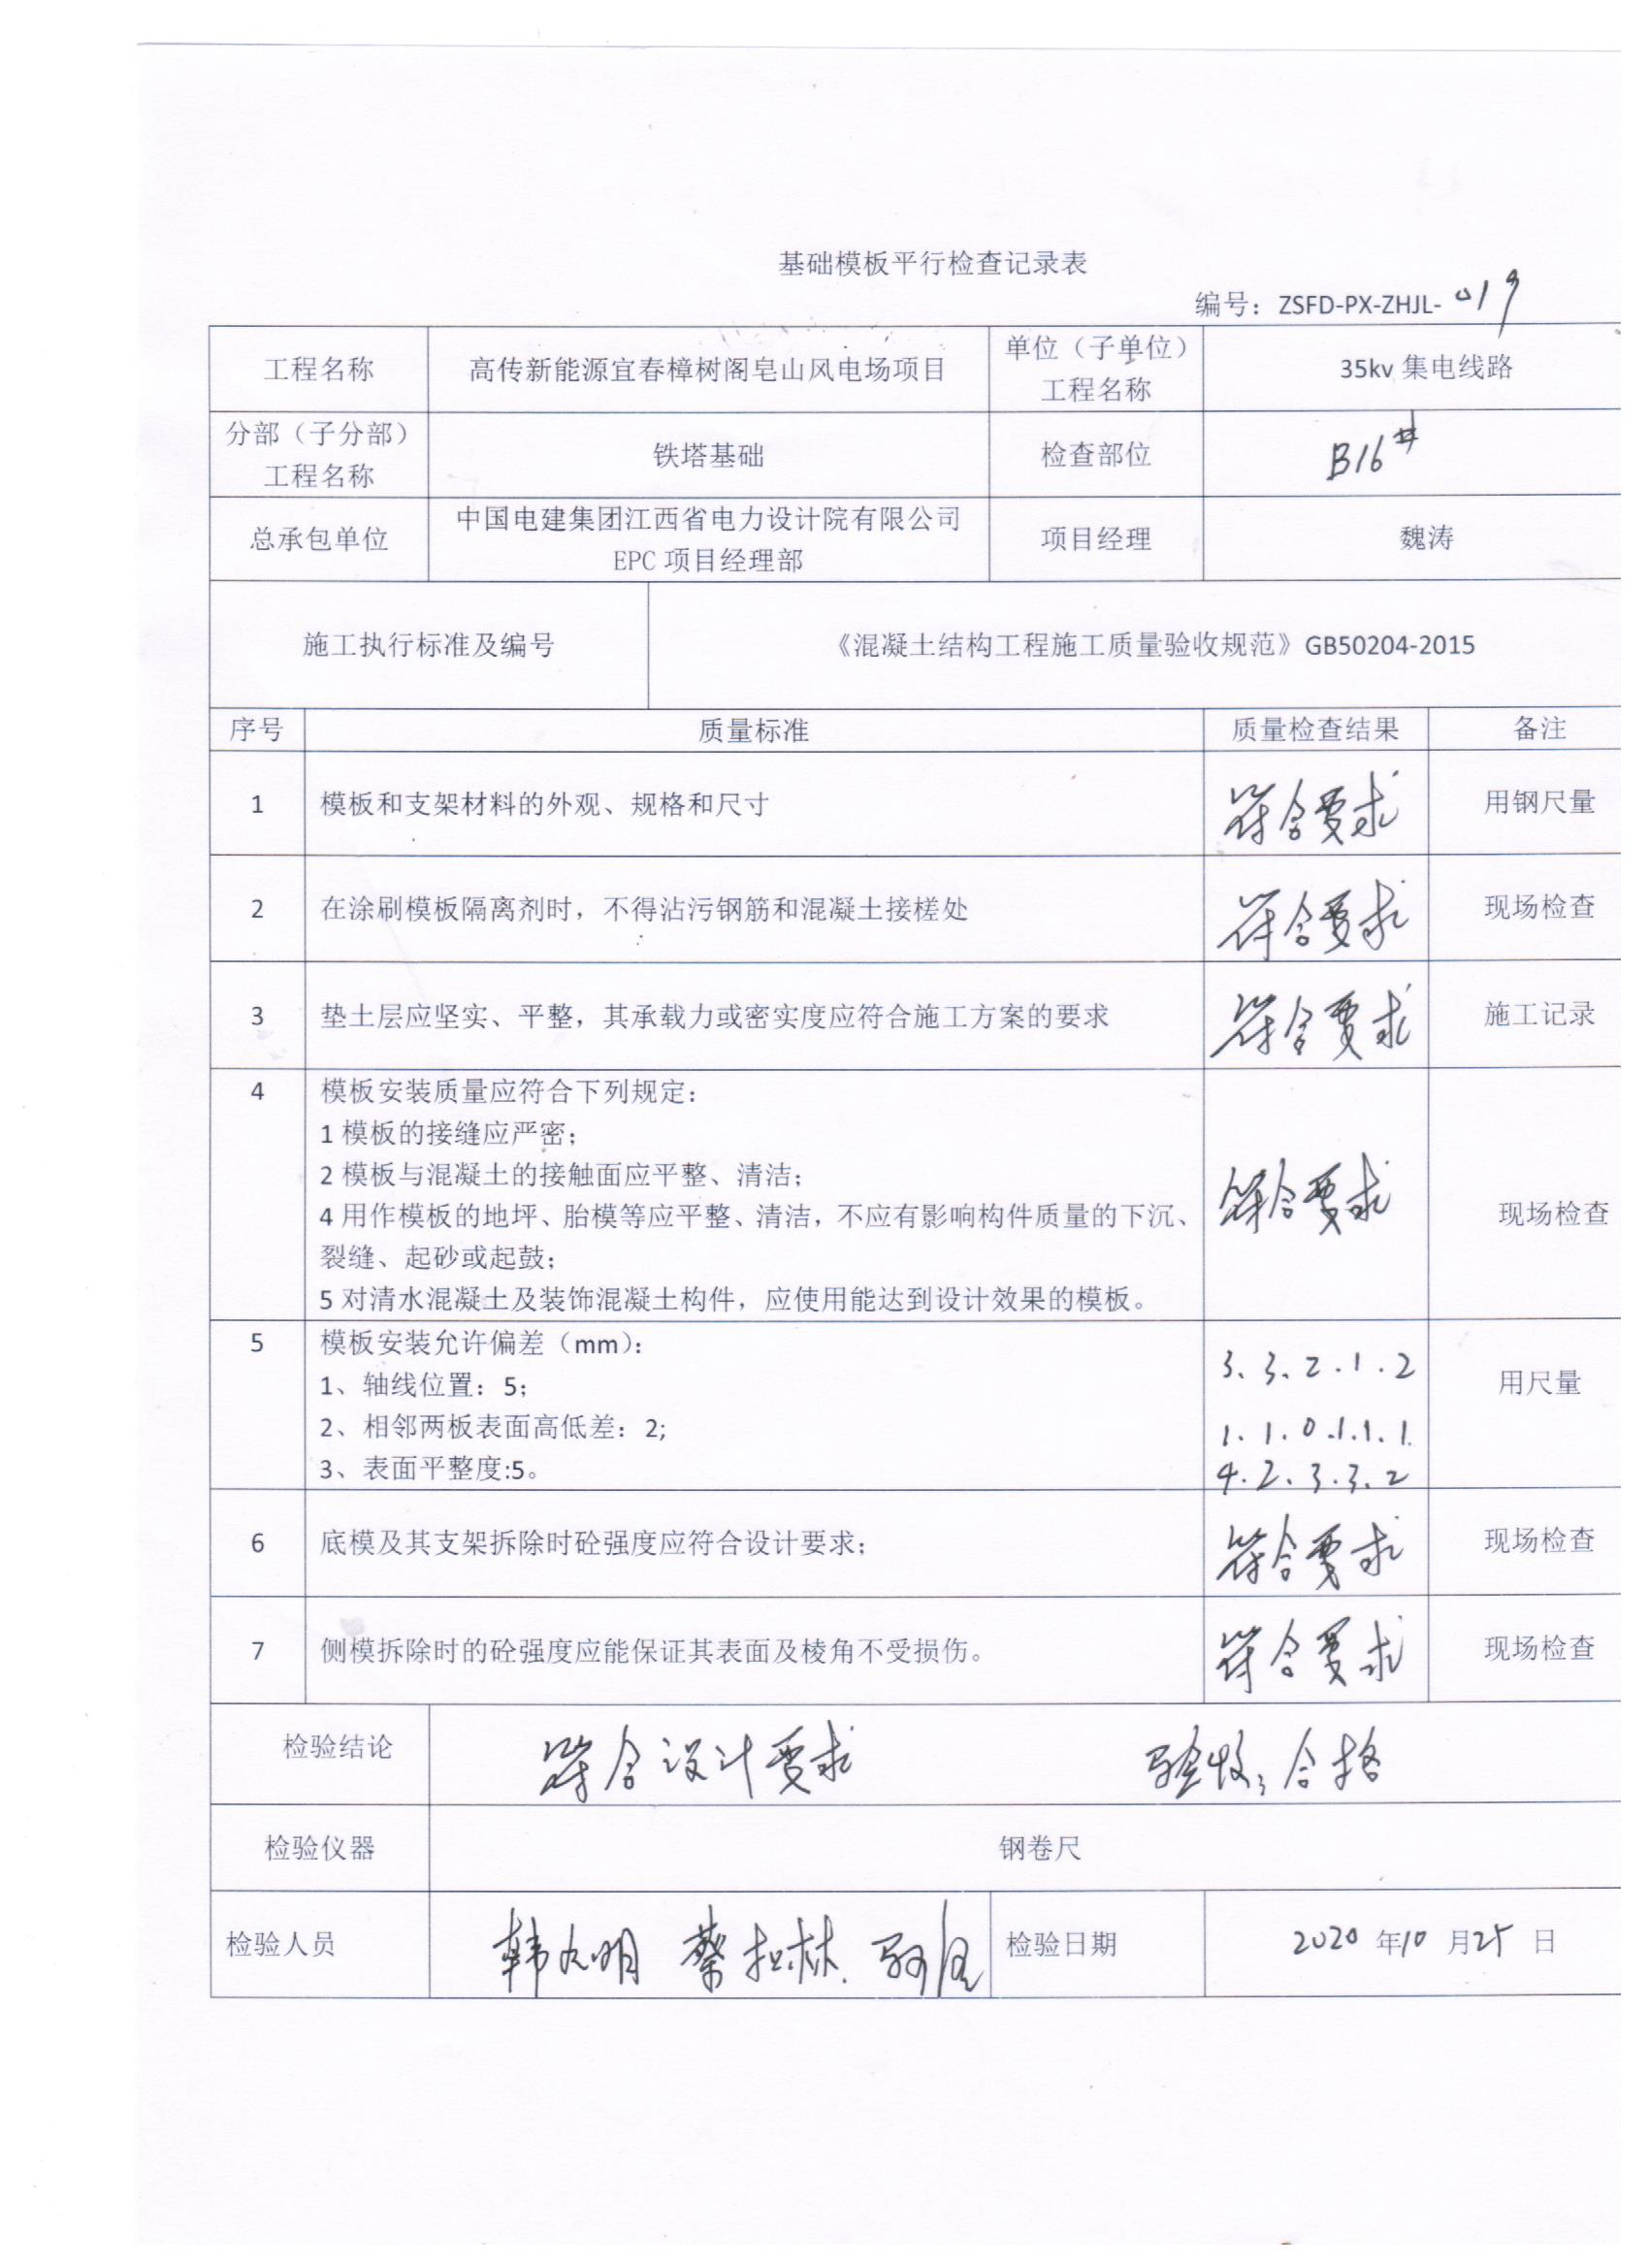 基础模板平行检查记录表
编号：ZSFD-PX-ZHJL-019
工程名称
高传新能源宜春樟树阁皂山风电场项目
单位（子单位）
工程名称
35kv 集电线路
分部（子分部）
工程名称
铁塔基础
检查部位
B16#
总承包单位
中国电建集团江西省电力设计院有限公司
EPC 项目经理部
项目经理
魏涛
施工执行标准及编号
《混凝土结构工程施工质量验收规范》GB50204-2015
序号
质量标准
质量检查结果
备注
1
模板和支架材料的外观、规格和尺寸
符合要求
用钢尺量
2
在涂刷模板隔离剂时，不得沾污钢筋和混凝土接槎处
符合要求
现场检查
3
垫土层应坚实、平整，其承载力或密实度应符合施工方案的要求
符合要求
施工记录
4
模板安装质量应符合下列规定：
1 模板的接缝应严密；
2 模板与混凝土的接触面应平整、清洁；
4 用作模板的地坪、胎模等应平整、清洁，不应有影响构件质量的下沉、
裂缝、起砂或起鼓；
5 对清水混凝土及装饰混凝土构件，应使用能达到设计效果的模板。
符合要求
现场检查
5
模板安装允许偏差（mm）：
1、轴线位置：5；
2、相邻两板表面高低差：2;
3、表面平整度:5。
3、3、2.1.2
1.1.0.1.1.1.
4.2.3.3.2
用尺量
6
底模及其支架拆除时砼强度应符合设计要求；
符合要求
现场检查
7
侧模拆除时的砼强度应能保证其表面及棱角不受损伤。
符合要求
现场检查
检验结论
符合设计要求
验收：合格
检验仪器
钢卷尺
检验人员
检验日期
2020 年10 月25 日